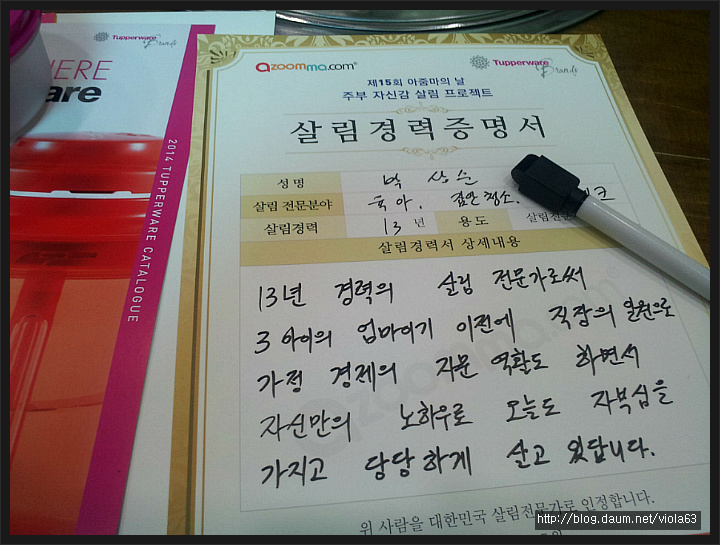 HERE
are
Tupperware
Brands
2014 TUPPERWARE CATALOGUE
azoomma.com®
Tupperware
Brands
제15회 아줌마의 날
주부 자신감 살림 프로젝트
살림경력증명서
성명 박 상순
살림 전문분야 육아, 집안청소,
살림경력 13년 용도 살림전문
살림경력서 상세내용
13년 경력의 살림 전문가로써
3아이의 엄마이기 이전에 직장의 일원으로
가정 경제의 자문 역활도 하면서
자신만의 노하우로 오늘도 자부심을
가지고 당당하게 살고 있답니다.
위 사람을 대한민국 살림전문가로 인정합니다.
http://blog.daum.net/viola63